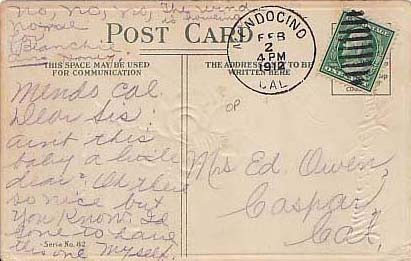 No, No, No, The wind
is
Normie
or
Blanchie
POST CARD
THIS SPACE MAY BE USED
FOR COMMUNICATION
THE ADDRESS TO BE
WRITTEN HERE
MENDOCINO
FEB
2
4 PM
1912
CAL
OP
Mendo Cal
Dear Sis.
aint this
baby a little
dear? Oh they
so nice but
you know I'd
love to have
this one myself.
Mrs Ed. Owen,
Caspar,
Cal.
Serie No. 82